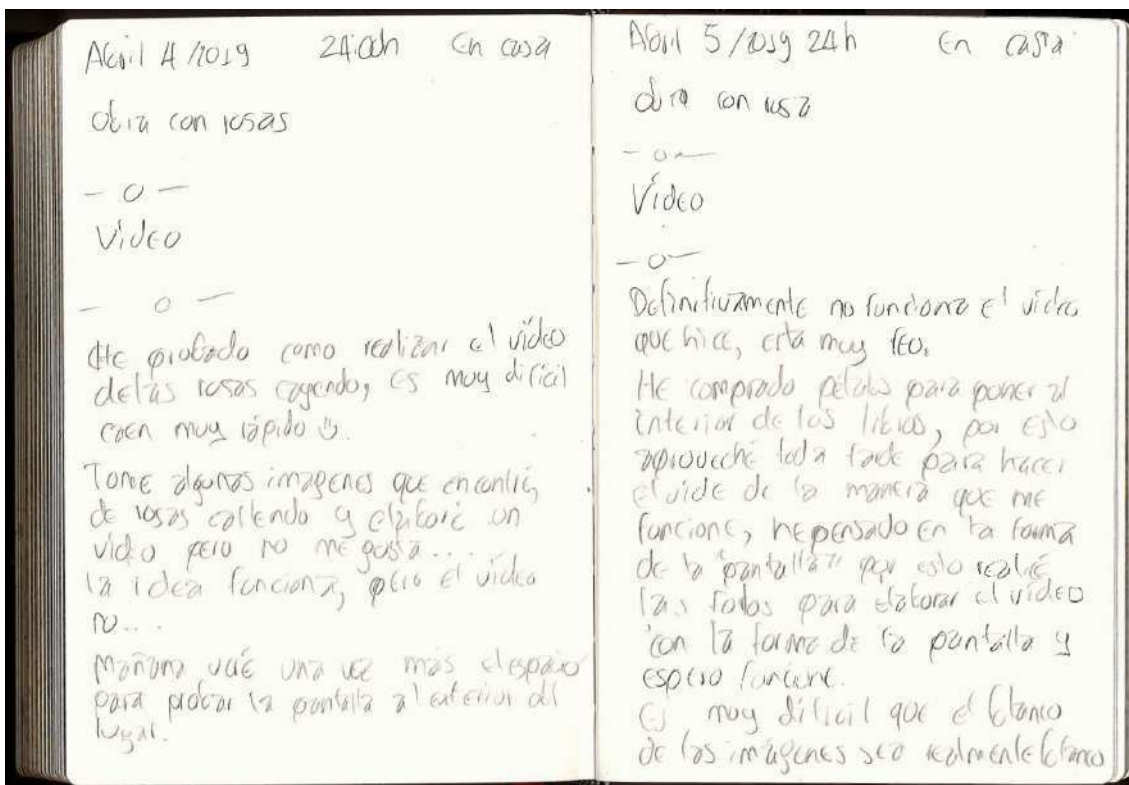 Abril 4/2019 24:00h En casa
Obra con rosas
— o —
Vídeo
— o —
He probado como realizar el vídeo
de las rosas cayendo, es muy dificil
caen muy rápido
Tome algunas imagenes que encontré,
de rosas callendo y elaboré un
video pero no me gusta...
la idea funciona, pero el vídeo
no...
Mañana veré una vez más el espacio
para probar la pantalla al exterior del
lugar.
Abril 5/2019 24h En casa
Obra con rosa
— o —
Vídeo
— o —
Definitivamente no funciona el vídeo
que hice, está muy feo.
He comprado pétalos para poner al
interior de los libros, por esto
aproveché toda tarde para hacer
el vide de la manera que me
funcione, he pensado en la forma
de la "pantalla" por esto realicé
las fotos para elaborar el vídeo
con la forma de la pantalla y
espero funcione.
Es muy dificil que el blanco
de las imágenes sea realmente blanco